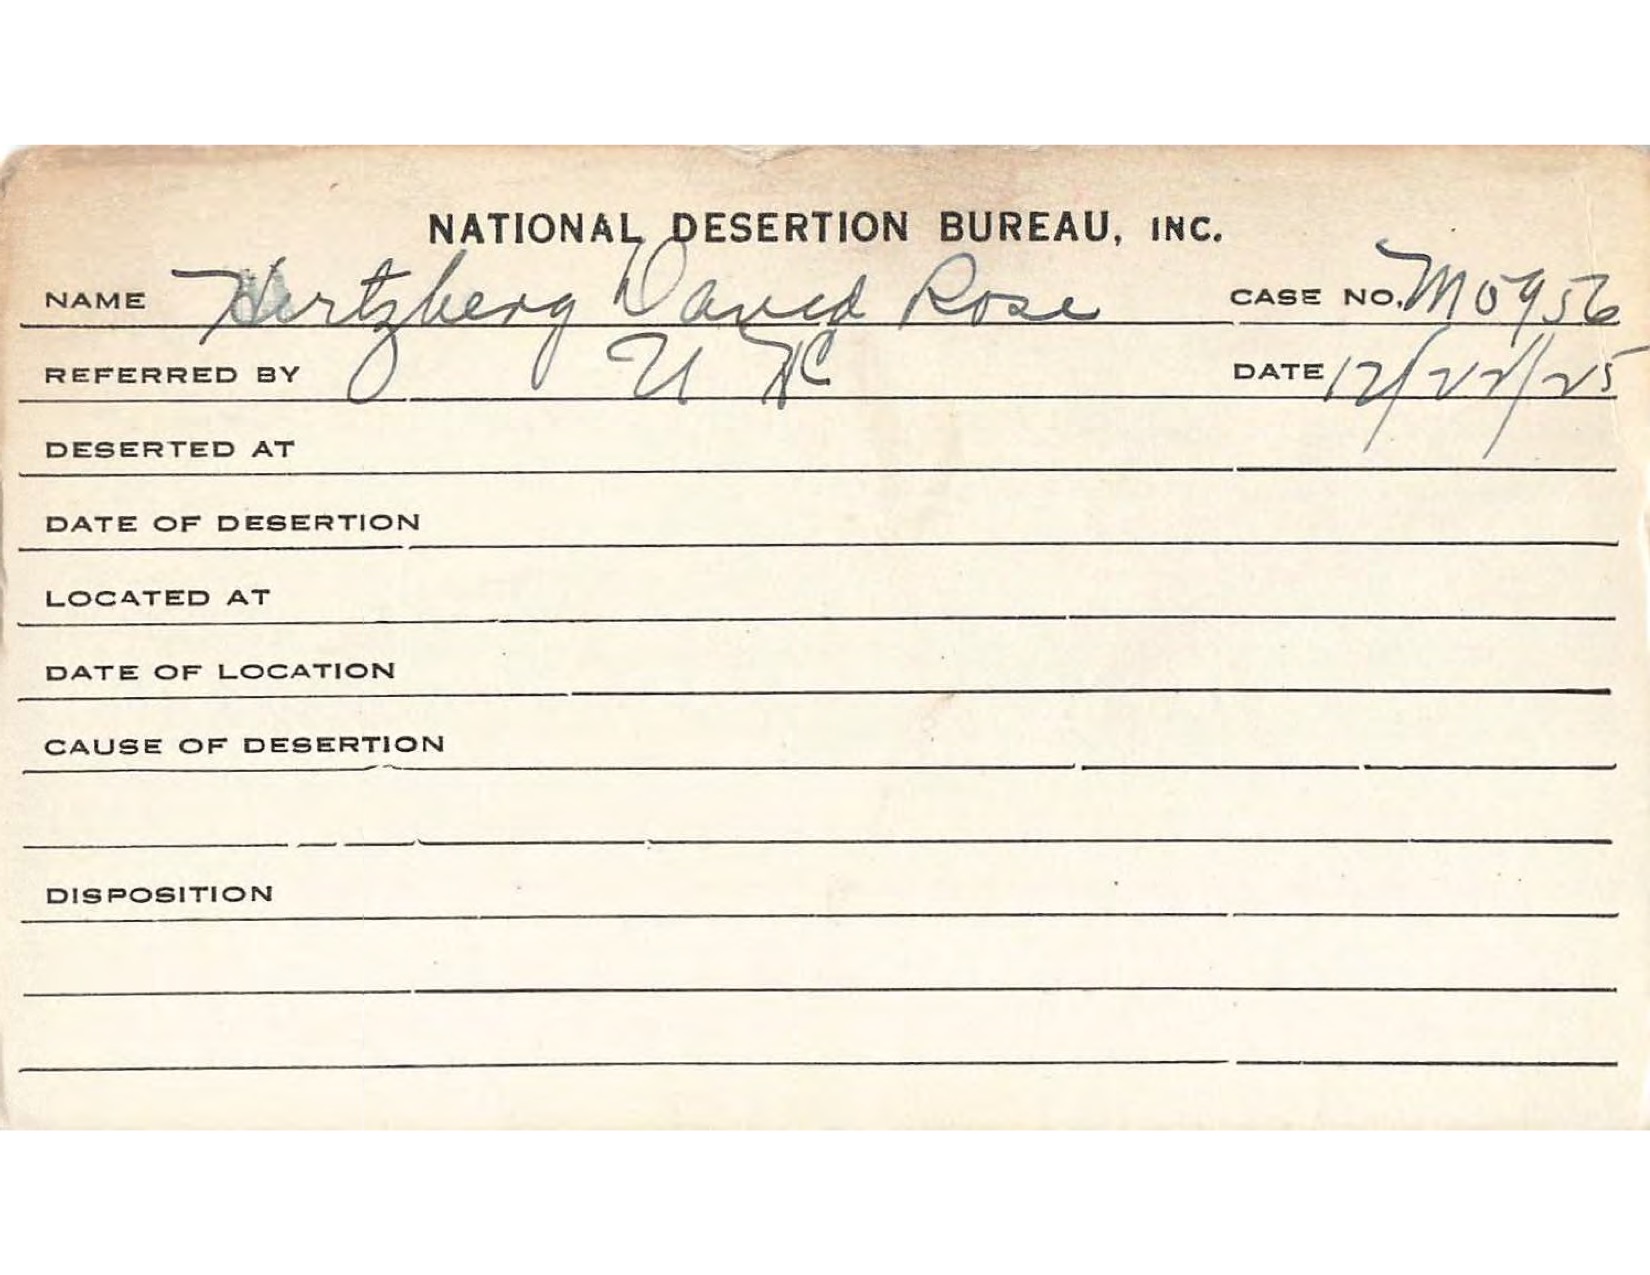 NATIONAL DESERTION BUREAU, INC.
NAME Hertzberg David Rose CASE NO. M05956
REFERRED BY U H C DATE 12/22/25
DESERTED AT
DATE OF DESERTION
LOCATED AT
DATE OF LOCATION
CAUSE OF DESERTION
DISPOSITION